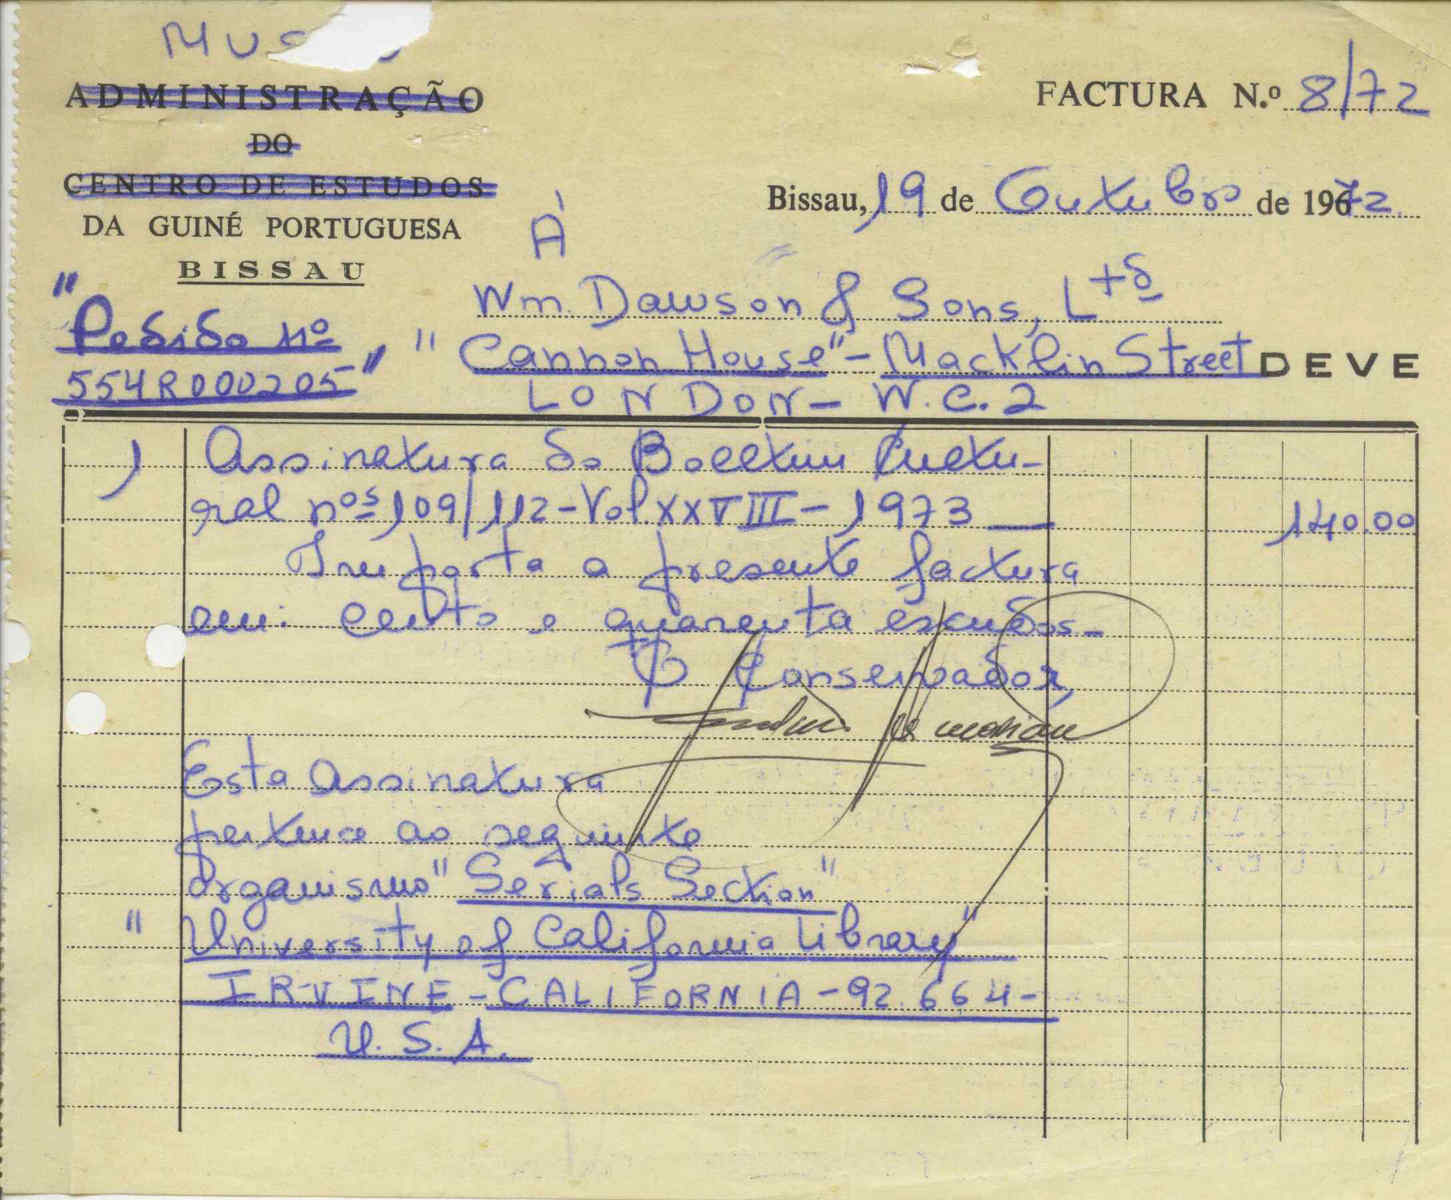 ADMINISTRAÇÃO
DO
CENTRO DE ESTUDOS
DA GUINÉ PORTUGUESA
BISSAU
FACTURA N.º 8/72
Bissau, 19 de Outubro de 1972
À
Wm. Dawson & Sons, Ltd
"Cannon House" - Macklin Street
LONDON - W.C.2
"Pedido nº
554R000205"
DEVE
1 Assinatura do Boletim Cultu-
ral nºs 109/112 - Vol. XXVIII - 1973 — 140.00
Importa a presente factura
em: cento e quarenta escudos -
O Conservador,
Esta assinatura
pertence ao seguinte
organismo "Serials Section"
"University of California Library"
IRVINE - CALIFORNIA - 92.664 -
U.S.A.